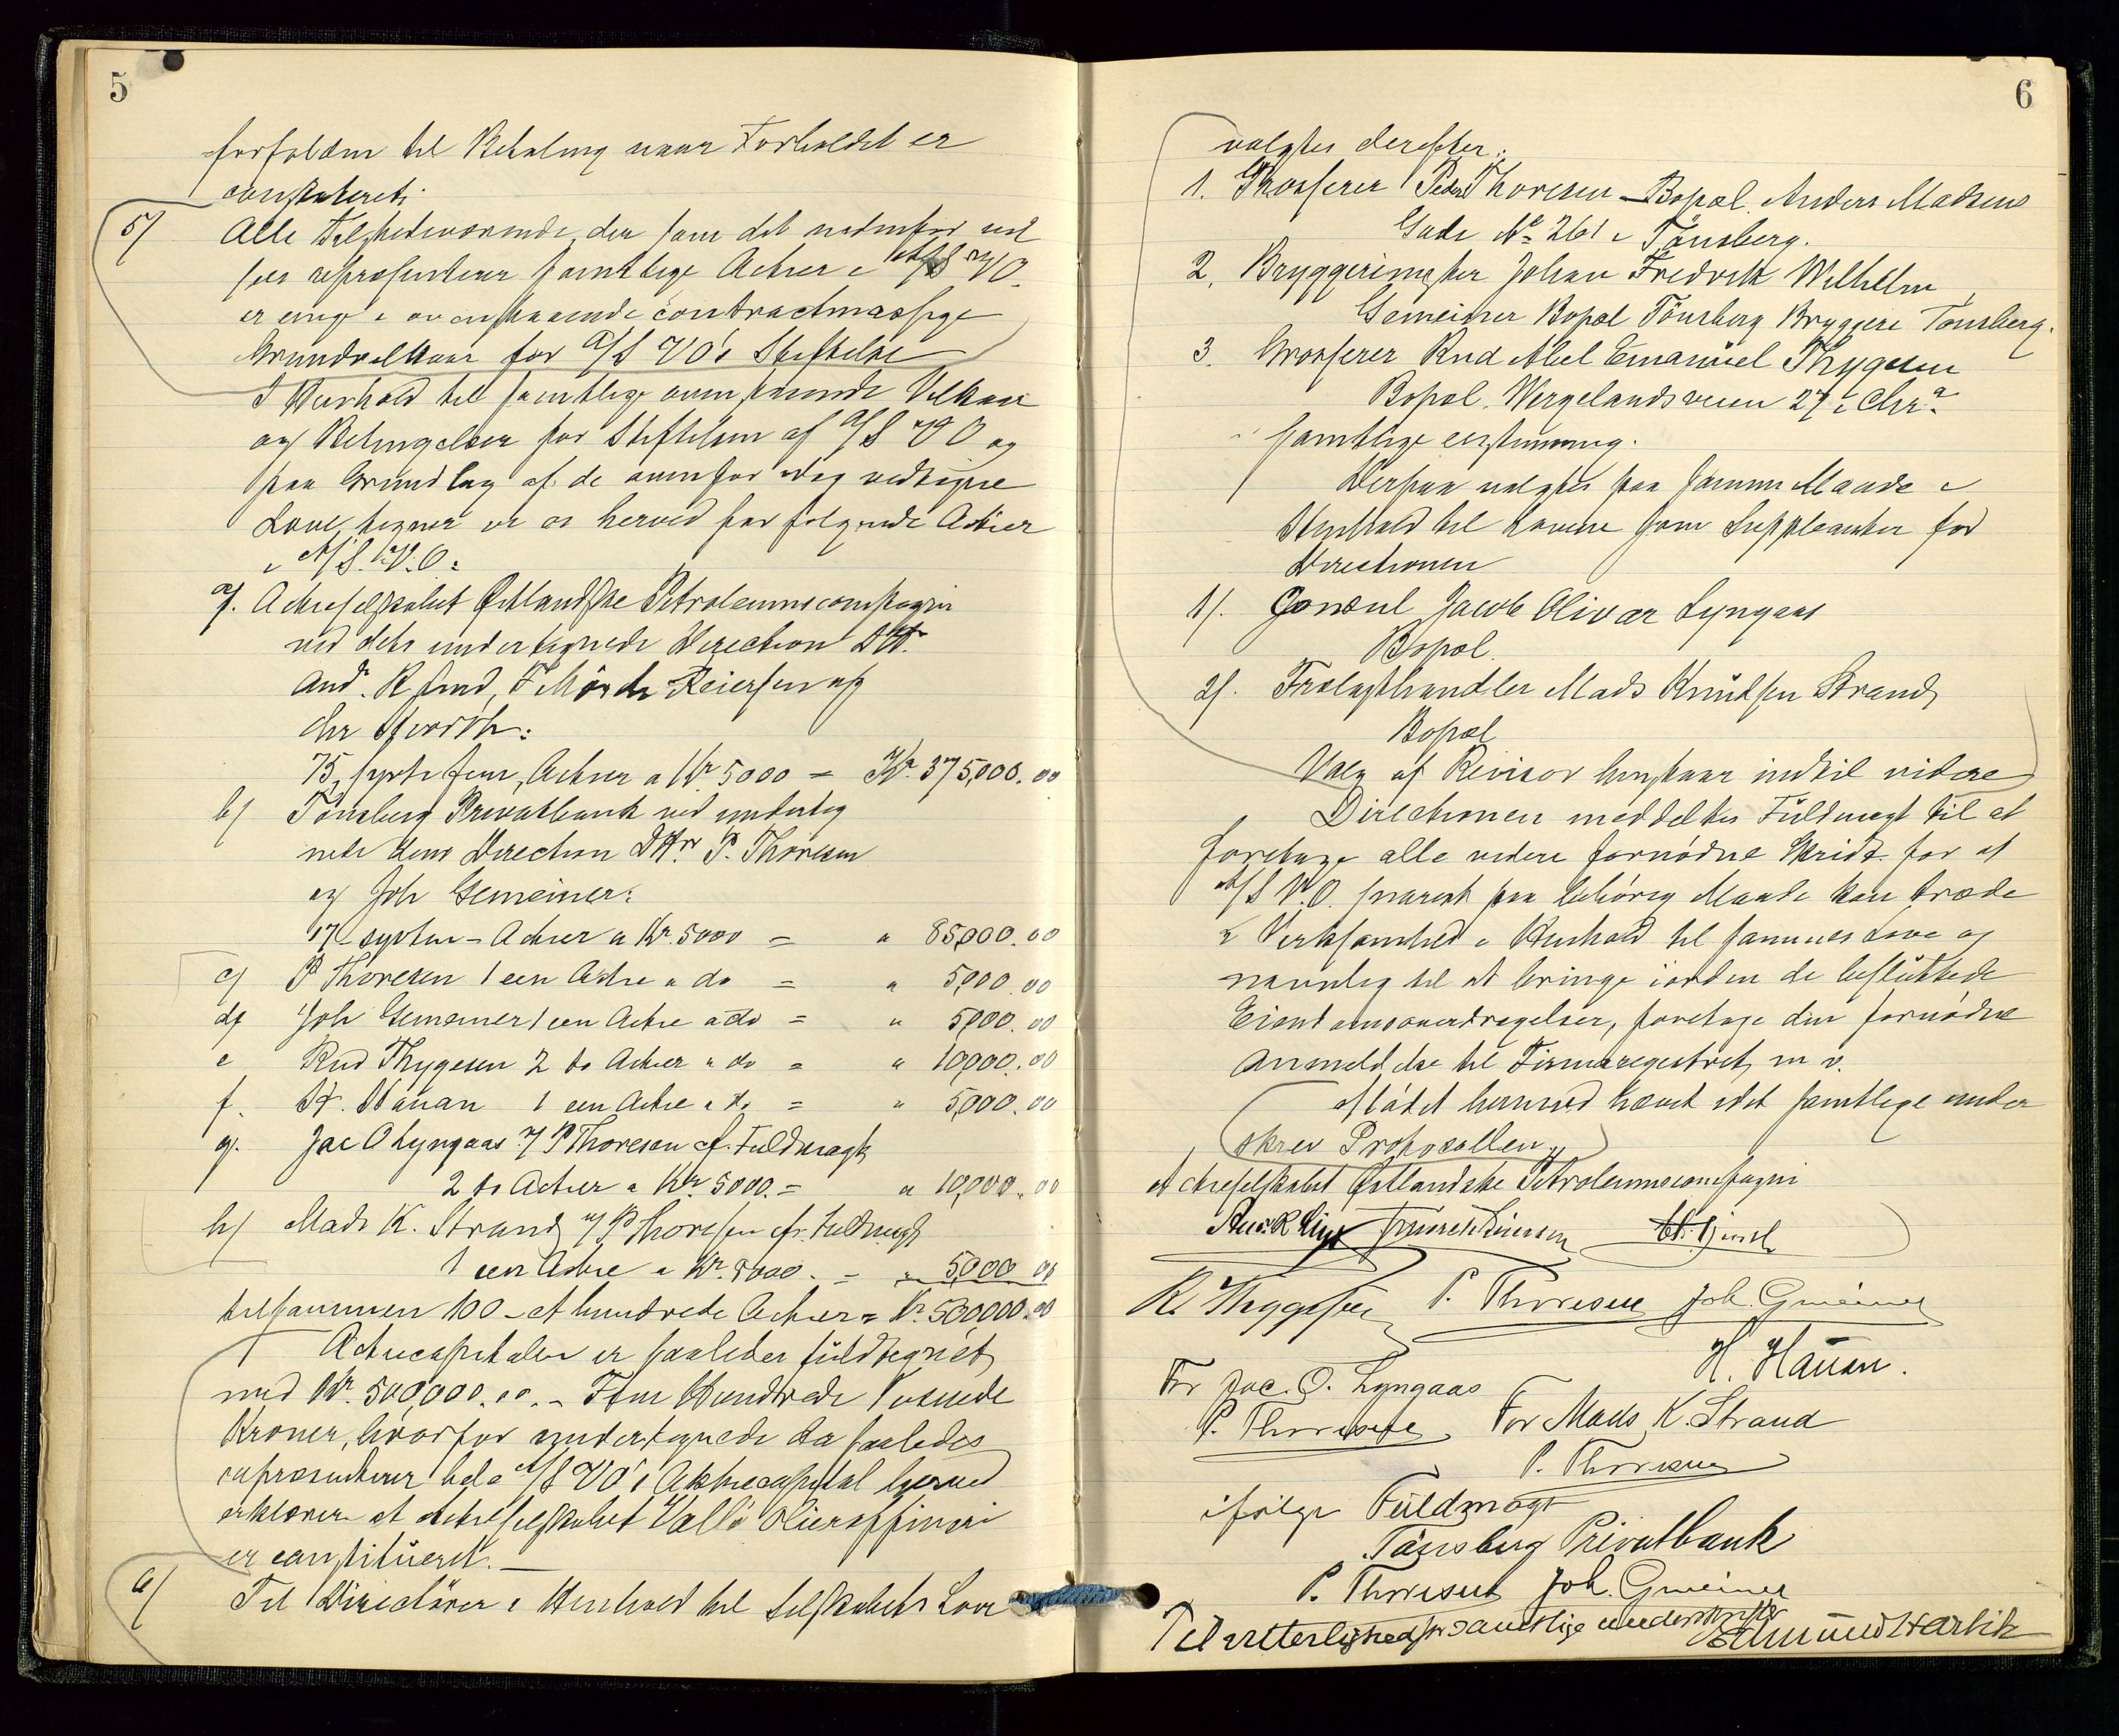 5
forfalden til Betaling naar Forholdet er
constateret.
5/ Alle Tilstedeværende, der som det nedenfor vil
sees repræsenterer samtlige Actier i A/S VO.
er enig i ovenstaaende contractmæssige
Grundvilkaar for A/S VO's Stiftelse
I Henhold til samtlige ovenstaaende Vilkaar
og Betingelser for Stiftelsen af A/S VO og
paa Grundlag af de ovenfor idag vedtagne
Love, tegner vi os herved for følgende Actier
i A/S. V.O:
a/. Actieselskabet Østlandske Petroleumscompagni
ved dets undertegnede Direction DHr.
And. R. Lind, F Mørch Reiersen og
Chr
75, sytti fem, Actier a Kr 5000 = Kr. 375,000.00
b/ Tønsberg Privatbank ved underteg
nede dens Direction DHr. P. Thoresen
og Joh Gmeiner:
17 - sytten - Actier a Kr. 5000 = " 85,000.00
c/ P Thoresen 1 een Actie a do = " 5,000.00
d/ Joh Gmeiner 1 een Actie a do = " 5,000.00
e Rud Thygesen 2 to Actier a do = " 10,000.00
f. H. Hauan 1 een Actie a do = " 5,000.00
g. Jac O Lyngaas v/ P Thoresen cf. Fuldmagt
2 to Actier a Kr. 5000. = " 10,000.00
h/ Mads K. Strand v/ P Thoresen cf. Fuldmagt
1 een Actie a Kr. 5000. = " 5,000 00
tilsammen 100 - et hundrede Actier = Kr. 500000.00
Actiecapitalen er saaledes fuldtegnet
med Kr. 500,000.00. - Fem Hundrede Tusinde
Kroner, hvorfor undertegnede da saaledes
repræsenterer hele A/S VO's Aktiecapital herved
erklærer at Actieselskabet Vallø Olieraffineri
er constitueret. -
6/ Til Directører i Henhold til Selskabets Love
6
valgtes derefter:
1. Grosserer Peder Thoresen - Bopæl. Anders Madsens
Gade No 261 i Tønsberg.
2. Bryggerimester Johan Fredrik Wilhelm
Gemeiner Bopæl Tønsberg Bryggeri Tønsberg.
3. Grosserer Rud Abel Emanuel Thygesen
Bopæl. Wergelandsveien 27 i Chra.
samtlige enstemmig.
Derpaa valgtes paa samme Maade i
Henhold til Lovene som Suppleanter for
Directionen
1/. Consul Jacob Olivar Lyngaas
Bopæl.
2/. Trælasthandler Mads Knudsen Strand
Bopæl
Valg af Revisor henstaar indtil videre
Directionen meddeltes Fuldmagt til at
foretage alle videre fornødne Skridt for at
A/S V.O. snarest paa behørig Maade kan træde
i Virksomhed i Henhold til sammes Love og
navnlig til at bringe iorden de besluttede
Eiendomsoverdragelser, foretage den fornødne
Anmeldelse til Firmaregistret m v.
Mødet hermed hævet idet samtlige under
skrev Protocollen
Actieselskabet Østlandske Petroleumscompagni
And. R Lind F Mørch Reiersen
R. Thygesen P. Thoresen Joh. Gmeiner
H. Hauan.
For Jac. O. Lyngaas
P. Thoresen For Mads K. Strand
P. Thoresen
ifølge Fuldmagt
Tønsberg Privatbank
P. Thoresen Joh. Gmeiner
Til vitterlighed for samtlige underskrifter